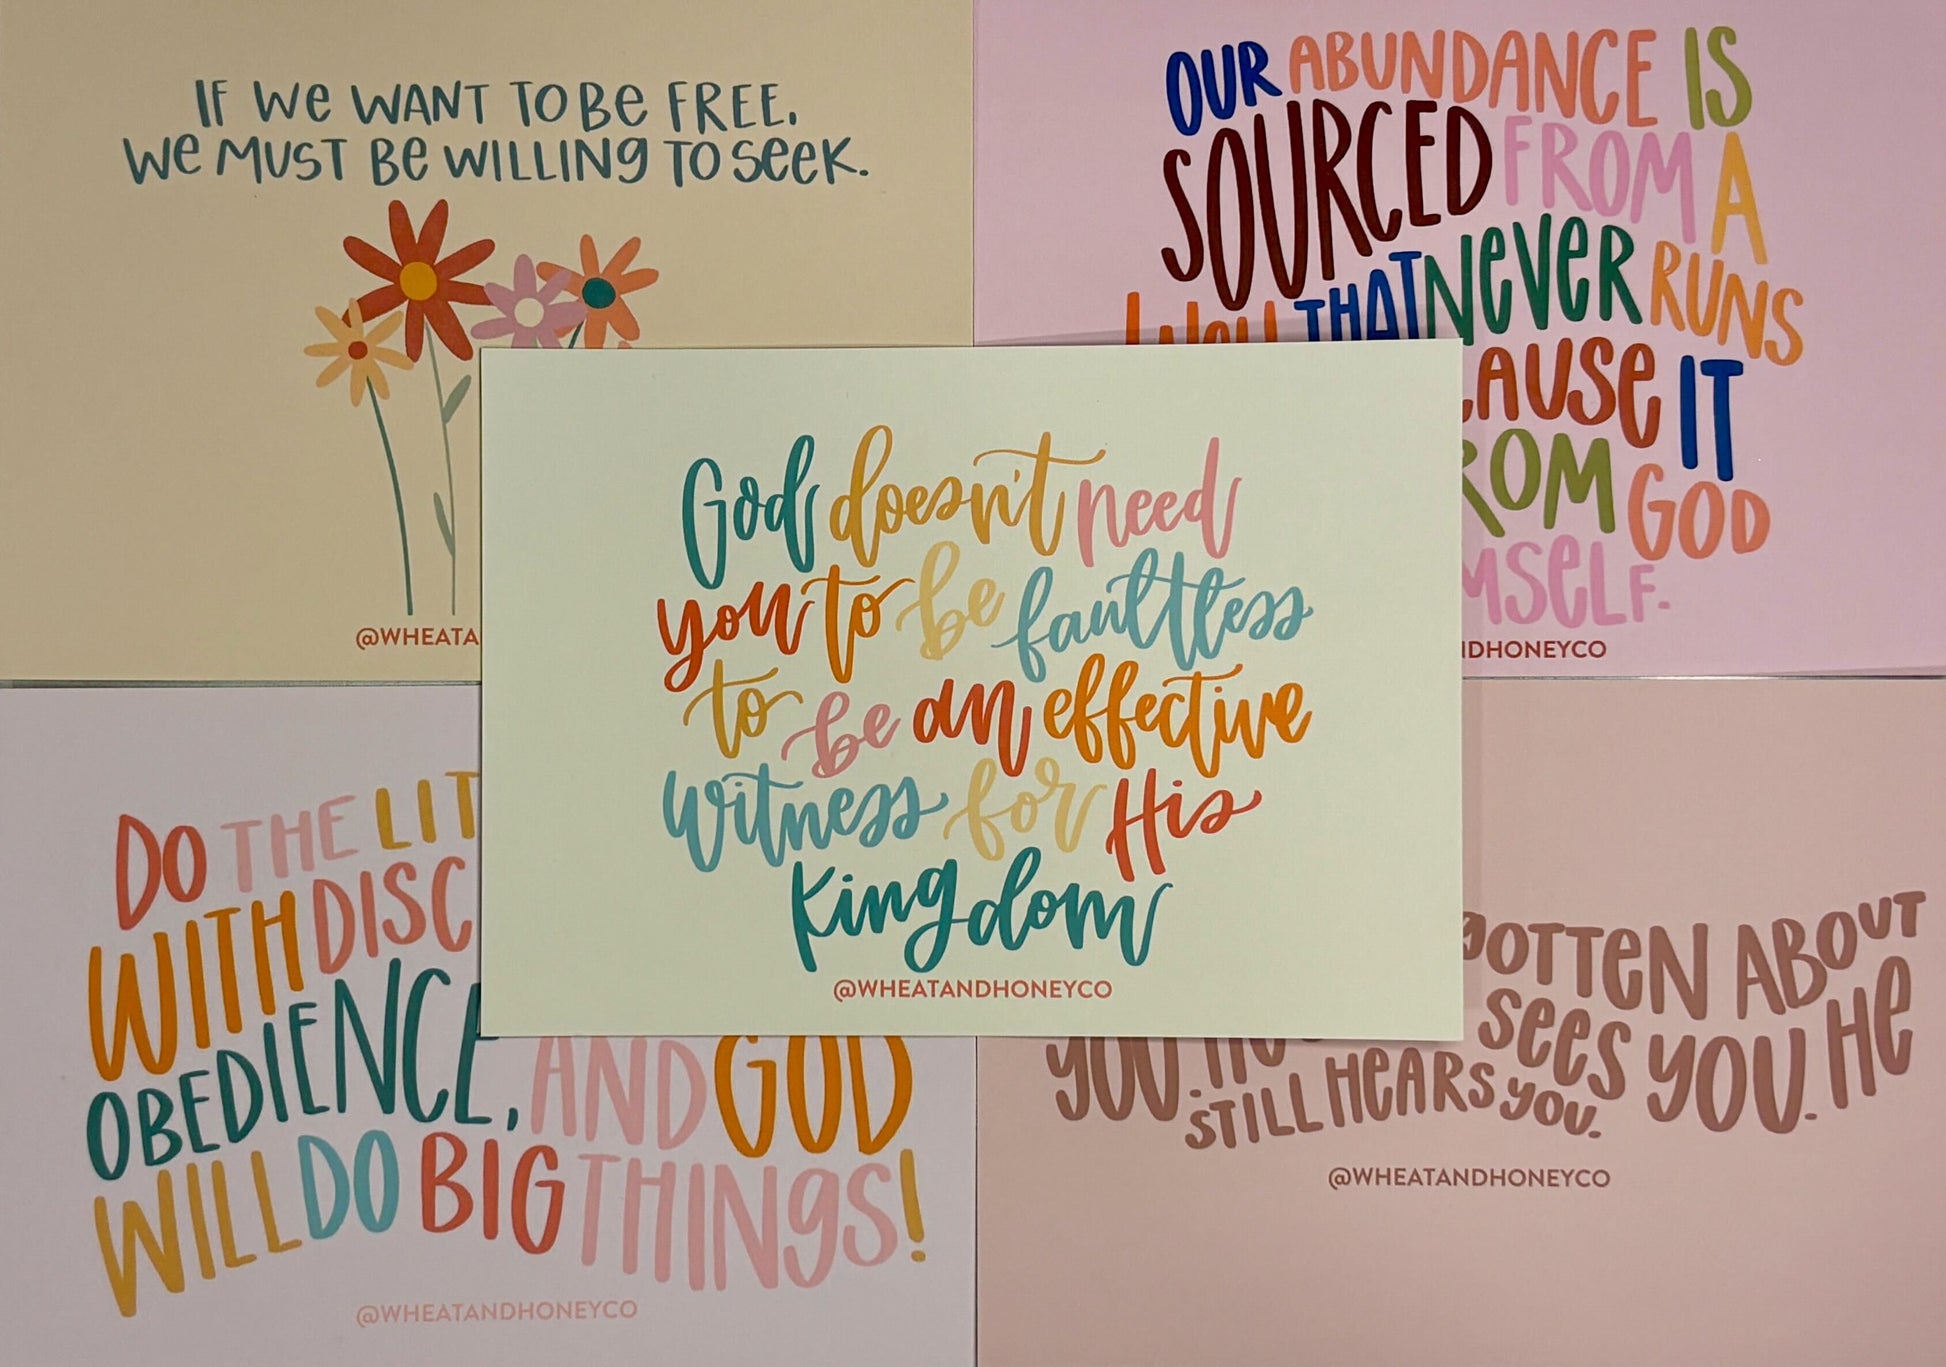 IF We WANT TO Be FREE,
We MUST Be WILLING TO SeeK.
@WHEATA
OUR ABUNDANCE IS
SOURCED FROM A
THAT NeVeR RUNS
IT
GOD
@WHEATANDHONEYCO
God doesn't need
you to be faultless
to be an effective
witness for His
Kingdom
@WHEATANDHONEYCO
DO THE LIT
WITH DISC
OBEDIENCE, AND GOD
WILL DO BIG THINGS!
@WHEATANDHONEYCO
ABOUT
YOU. SeeS YOU. He
STILL HeARS YOU.
@WHEATANDHONEYCO